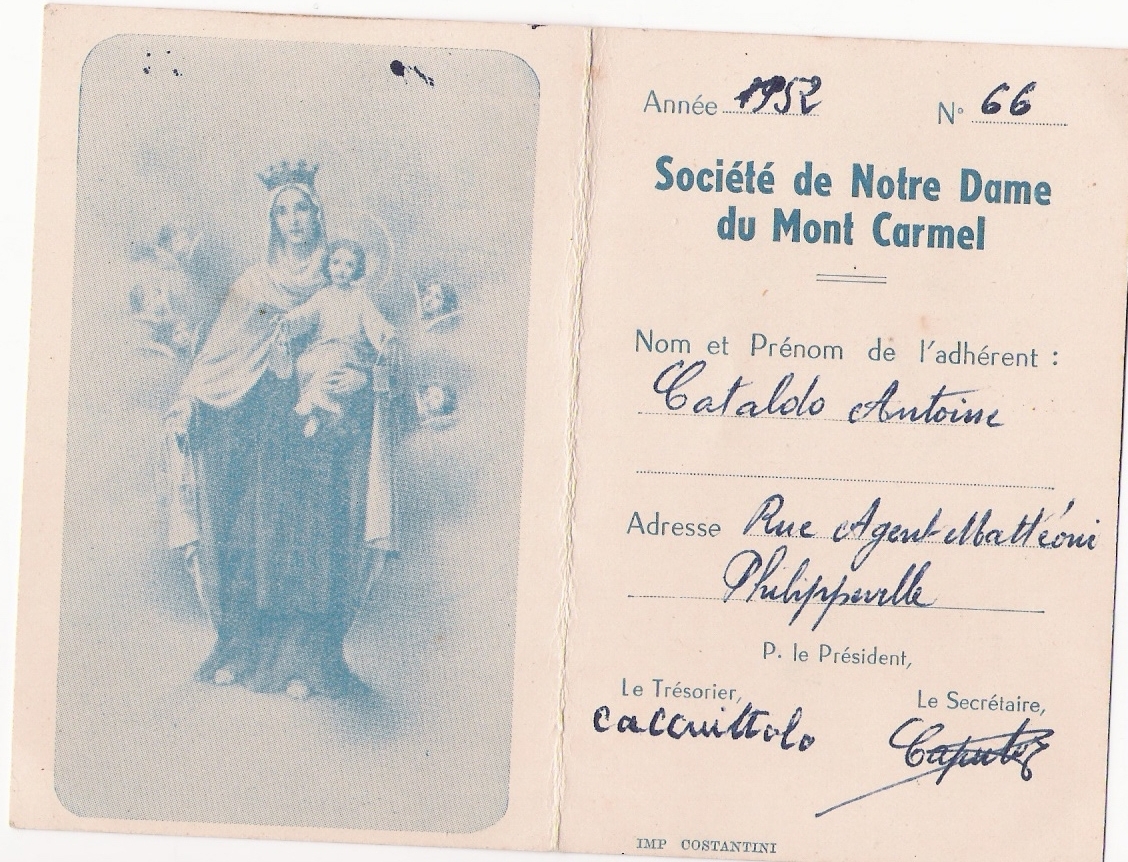 Année 1952 N° 66
Société de Notre Dame
du Mont Carmel
Nom et Prénom de l'adhérent :
Cataldo Antoine
Adresse Rue Agent Mattéoni
Philippeville
P. le Président,
Le Trésorier, Le Secrétaire,
Caccuittolo Caputo
IMP COSTANTINI